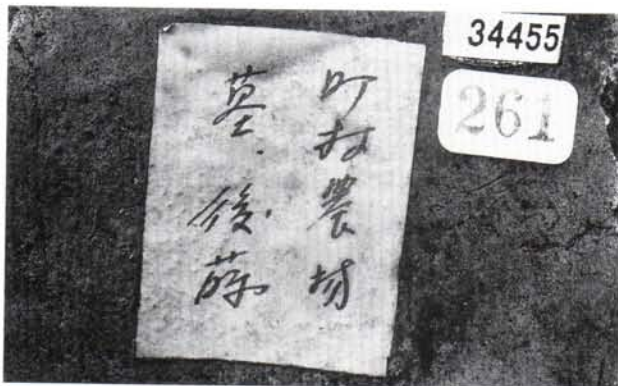 34455
261
町村農場
墓.後藤